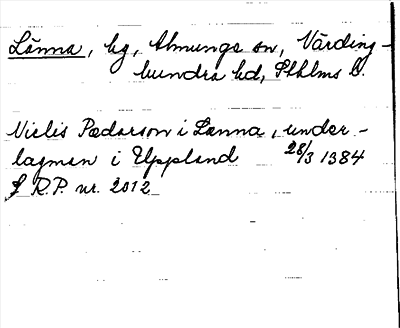 Länna, by, Almunge sn, Närding-
hundra hd, Sthlms l.
Niclis Pædarson i Lænna, under-
lagman i Uppland 28/3 1384
§ R.P. nr. 2012